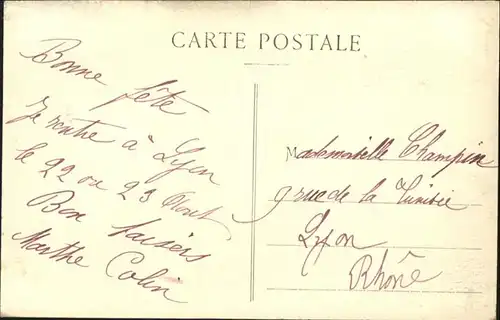 CARTE POSTALE
Bonne fête
Je rentre à Lyon
le 22 ou 23 Aout
Bon baisers
Marthe Colin
Mademoiselle Champin
9 rue de la
Lyon
Rhône